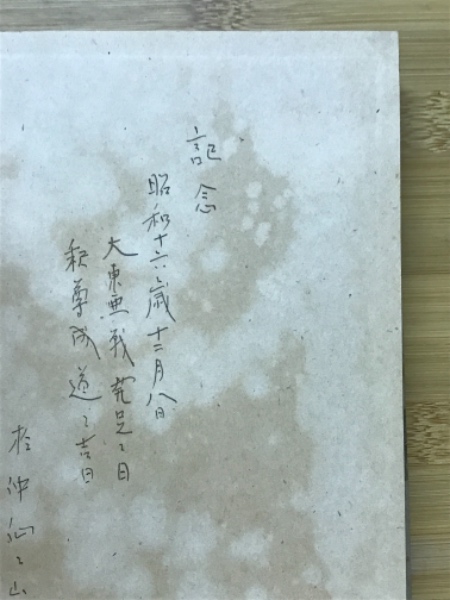 記念
昭和十六歳十二月八日
大東亜戦発足之日
釈尊成道之吉日
於仲仙之山